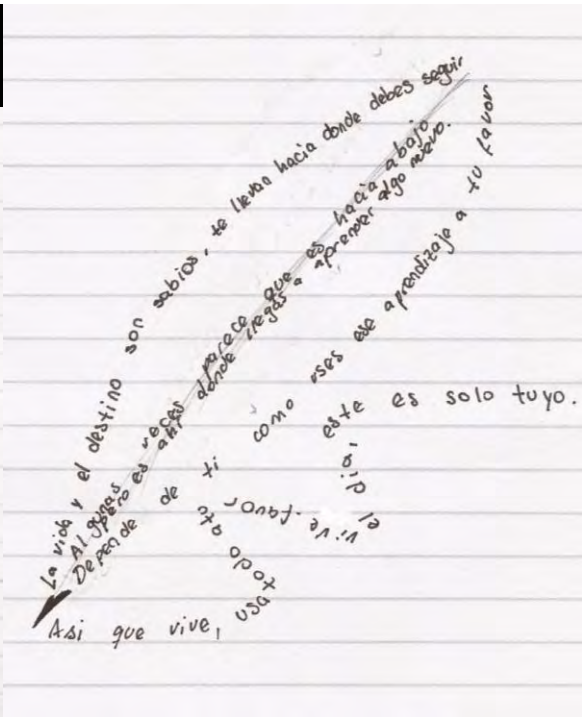 La vida y el destino son sabios, te llevan hacia donde debes seguir
Algunas veces parece que es hacia abajo
pero es ahí donde llegas a aprender algo nuevo.
Depende de ti como uses ese aprendizaje a tu favor
Asi que vive, usa todo atu favor. vive el dia, este es solo tuyo.